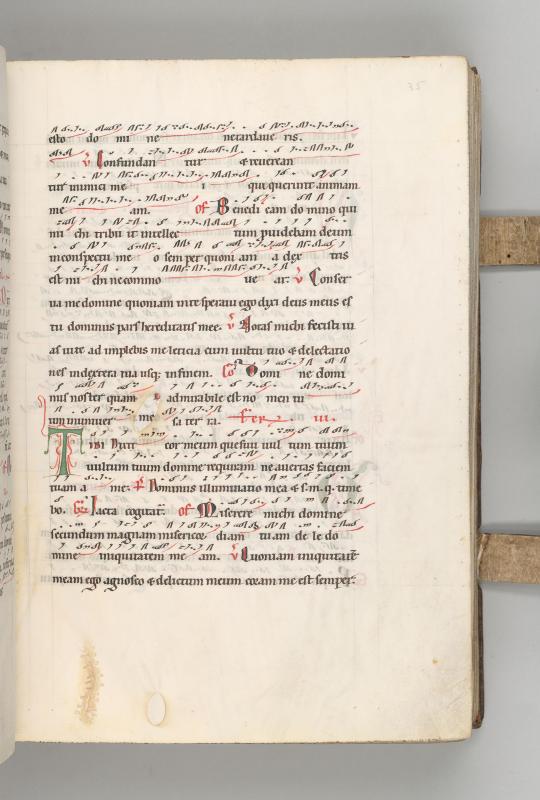 35
esto do mi ne netardaue ris.
v Confundan tur & reuerean
tur inimici me i qui querunt animam
me am. of Benedi cam do mino qui
mi chi tribu it intellec tum prouidebam deum
inconspectu me o sem per quoniam a dex tris
est mi chi ne commo ue ar. v Conser
ua me domine quoniam inte speraui ego dixi deus meus es
tu dominus pars hereditatis mee. v Notas michi fecisti ui
as uite ad implebis me leticia cum uultu tuo & delectatio
nes indextera tua usq; infinem. Co Domi ne domi
nus noster quam admirabile est no men tu
um inuniuer sa ter ra. Fer
Tibi dixit cor meum quesiui uul tum tuum
uultum tuum domine requiram ne auertas faciem
tuam a me. Ps Dominus illuminatio mea & s. m. q. time
bo. Gr Iacta cogitat. of Miserere michi domine
secundum magnam misericor diam tuam de le do
mine iniquitatem me am. v Quoniam iniquitatē
meam ego agnosco & delictum meum coram me est semper.